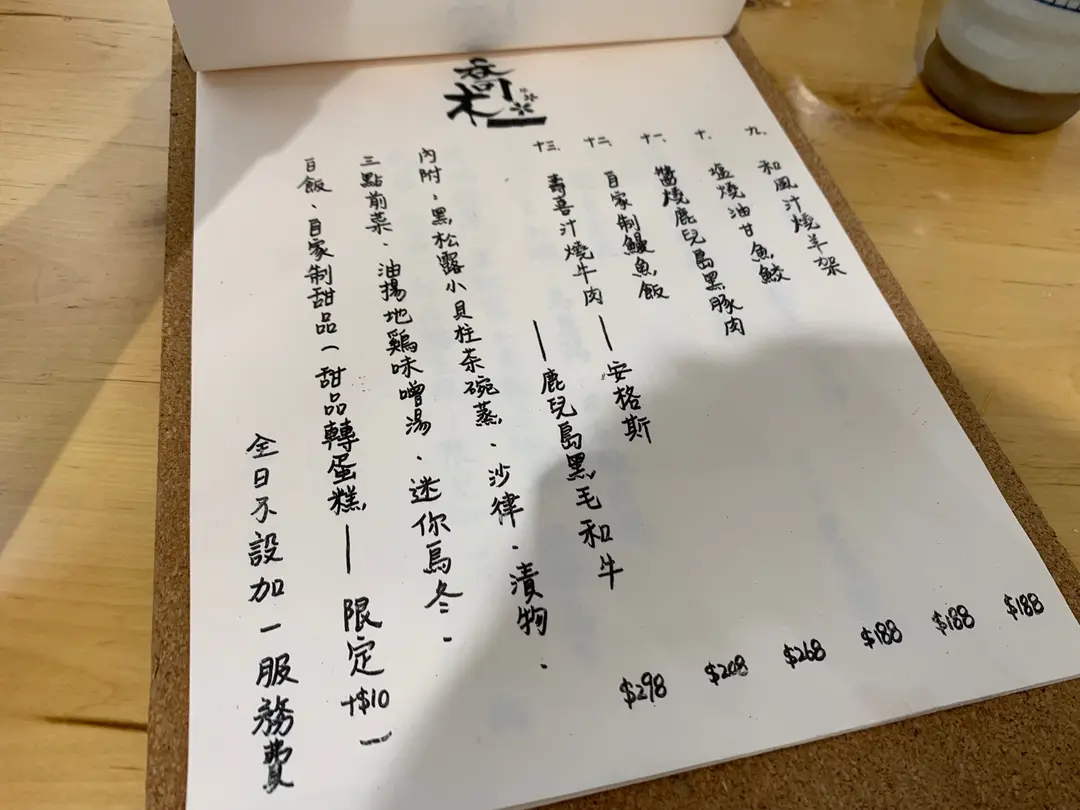 喬木
九、和風汁燒羊架 $188
十、塩燒油甘魚鮫 $188
十一、醬燒鹿兒島黑豚肉 $188
十二、自家制鰻魚飯 $268
十三、壽喜汁燒牛肉—安格斯 $208
—鹿兒島黑毛和牛 $298
內附：黑松露小貝柱茶碗蒸、沙律、漬物、
三點前菜、油揚地鷄味噌湯、迷你烏冬、
白飯、自家制甜品(甜品轉蛋糕—限定+$10)
全日不設加一服務費